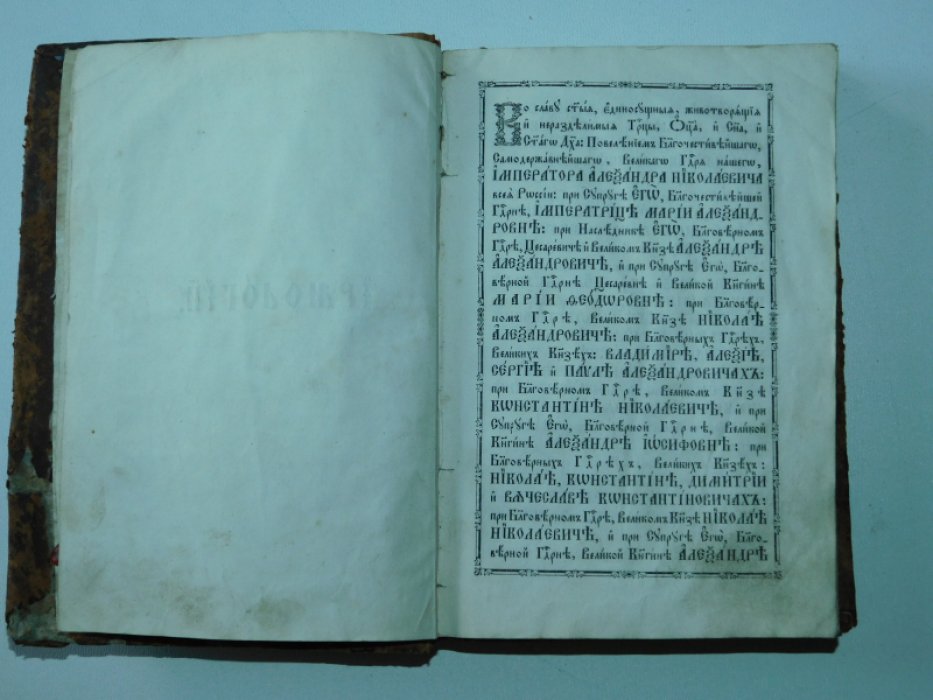 Во сла́ву ст҃ы́ѧ, є҆диносу́щныѧ, животворѧ́щїѧ
и҆ нераздѣ́лимыѧ Трⷪ҇цы, Ѻ҆ц҃а̀, и҆ Сн҃а, и҆
Ст҃а́гѡ Дх҃а: Повелѣ́нїемъ Бл҃гочести́вѣйшагѡ,
Самодержа́внѣйшагѡ, Вели́кагѡ Гдⷭ҇рѧ на́шегѡ,
І҆МПЕРА́ТОРА А҆ЛЕѮА́НДРА НІКОЛА́ЕВИЧА
всеѧ̀ Рѡссі́и: при Сꙋпрꙋ́гѣ Є҆ГѠ̀, Бл҃гочести́вѣйшей
Гдⷭ҇рнѣ, І҆МПЕРАТРИ́ЦѢ МАРІ́И А҆ЛЕѮА́НД-
РОВНѢ: при Наслѣ́дникѣ Є҆ГѠ̀, Бл҃говѣ́рномъ
Гдⷭ҇рѣ, Цесаре́вичѣ и҆ Вели́комъ Кн҃зѣ А҆ЛЕѮА́НДРѢ
А҆ЛЕѮА́НДРОВИЧѢ, и҆ при Сꙋпрꙋ́гѣ Є҆гѡ̀, Бл҃го-
вѣ́рной Гдⷭ҇рнѣ Цесаре́внѣ и҆ Вели́кой Кн҃ги́нѣ
МАРІ́И ѲЕО́ДѠРОВНѢ: при Бл҃говѣ́р-
номъ Гдⷭ҇рѣ, Вели́комъ Кн҃зѣ НІКОЛА́Ѣ
А҆ЛЕѮА́НДРОВИЧѢ: при Бл҃говѣ́рныхъ Гдⷭ҇рѣхъ,
Вели́кихъ Кн҃зѣ́хъ: ВЛАДИ́МІРѢ, А҆ЛЕѮІ́Ѣ,
СЕ́РГІѢ и҆ ПА́ѴЛѢ А҆ЛЕѮА́НДРОВИЧАХЪ:
при Бл҃говѣ́рномъ Гдⷭ҇рѣ, Вели́комъ Кн҃зѣ
КѠНСТАНТІ́НѢ НІКОЛА́ЕВИЧѢ, и҆ при
Сꙋпрꙋ́гѣ Є҆гѡ̀, Бл҃говѣ́рной Гдⷭ҇рнѣ, Вели́кой
Кн҃ги́нѣ А҆ЛЕѮА́НДРѢ І҆Ѡ́СИФОВНѢ: при
Бл҃говѣ́рныхъ Гдⷭ҇рѣхъ, Вели́кихъ Кн҃зѣ́хъ:
НІКОЛА́Ѣ, КѠНСТАНТІ́НѢ, ДИМИ́ТРІИ
и҆ ВѦЧЕСЛА́ВѢ КѠНСТАНТІ́НОВИЧАХЪ:
при Бл҃говѣ́рномъ Гдⷭ҇рѣ, Вели́комъ Кн҃зѣ НІКОЛА́Ѣ
НІКОЛА́ЕВИЧѢ, и҆ при Сꙋпрꙋ́гѣ Є҆гѡ̀, Бл҃го-
вѣ́рной Гдⷭ҇рнѣ, Вели́кой Кн҃ги́нѣ А҆ЛЕѮА́НДРѢ